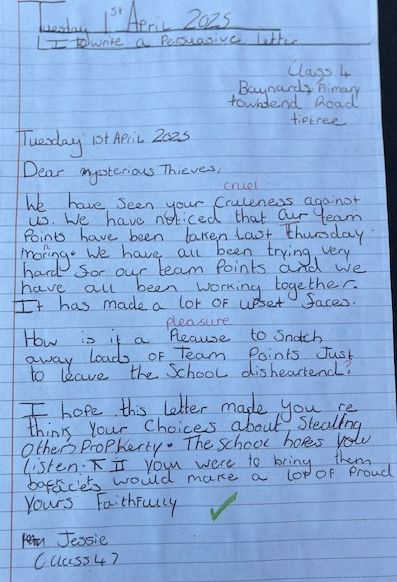 Tuesday 1st April 2025
I to write a Persuasive letter
Class 4
Baynards Primary
townsend Road
tiptree
Tuesday 1st April 2025
Dear mysterious Thieves,
cruel
We have seen your Cruleness against
us. We have noticed that our team
Points have been taken Last Thursday
moring. We have all been trying very
hard for our team Points and we
have all been working together.
It has made a lot of upset faces.
pleasure
How is it a Pleause to Snatch
away loads of Team Points Just
to leave the School disheartend?
I hope this letter made you re
think Your Choices about Stealing
others ProPkerty. The School hopes you
listen. If you were to bring them
back faces would make a lot of Proud
Yours Faithfully
Jessie
(Class 4)